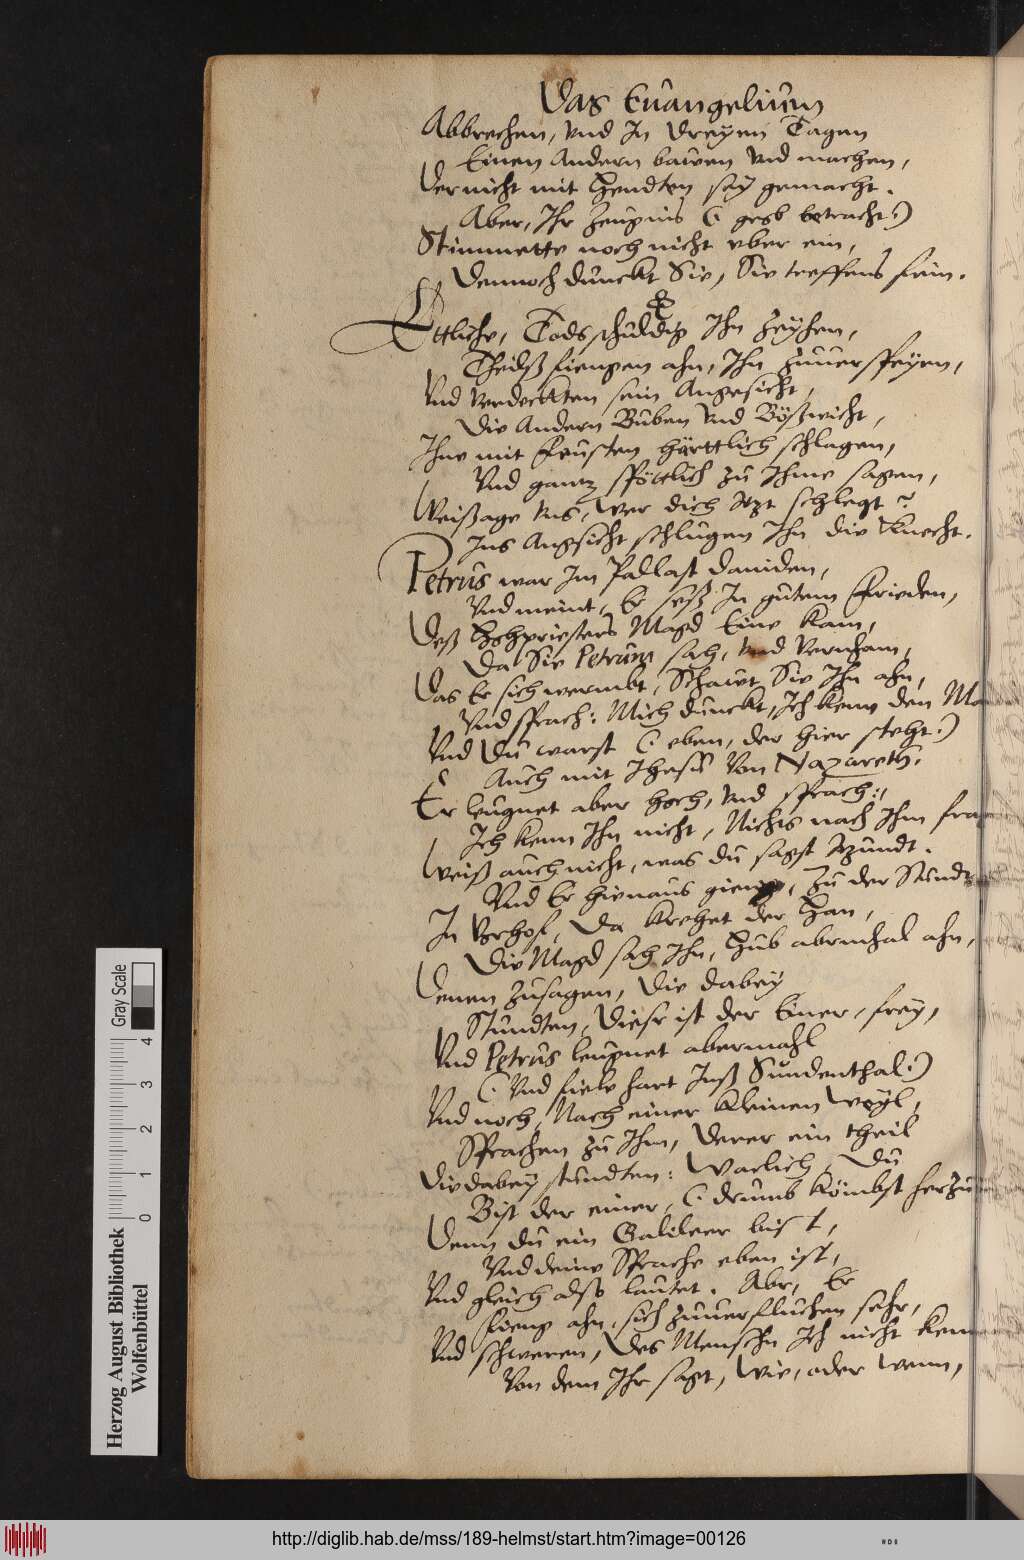 Das Euangelium
Abbrechen, vnd In dreyen Tagen
Einen Andern bawen vnd machen,
Der nicht mit Hendten sey gemacht.
Aber, Ihr Zeugnis (: gebt betracht:)
Stimmette noch nicht vber ein,
Dennoch dunckt Sie, Sie treffens fein.
Ettliche, Tods schuldig Ihn Zeyhen,
Theilß fiengen ahn, Ihn Zuuerspeyen,
Vnd verdeckten sein Angesicht,
Die Andern Buben vnd Bößwicht,
Ihne mit Feusten härttlich schlagen,
Vnd gantz spöttlich zu Ihme sagen,
Weißage vns, Wer dich Itzt schlegt?
Ins Angsicht schlugen Ihn die Knecht.
Petrus war Im Pallast daniden,
Vnd meint, Er seß In gutem Frieden,
Deß Hohpriesters Magd Eine kam,
Da Sie Petrum sach, vnd vernham,
Das Er sich wermbt, Schawt Sie Ihn ahn,
Vnd sprach: Mich dunckt, Ich kenne den Ma
Vnd Du warst (: eben, der hier steht:)
Auch mit Ihesu von Nazareth.
Er leugnet aber hoch, vnd sprach:,
Ich kenn Ihn nicht, Nichts nach Ihm fra
Weiß auch nicht, was du sagst Itzundt.
Vnd Er hienaus gieng, Zu der Stundt
In Vorhof, Da krehet der Han,
Die Magd sach Ihn, Hub abrmhal ahn,
Denen zusagen, die dabey
Stundten, Dieser ist der Einer, frey,
Vnd Petrus leugnet abermahl
(: Vnd fiele hart Inß Sundenthal:)
Vnd noch, Nach einer kleinen Weyl,
Sprachen zu Ihm, Derer ein theil
Die dabey stundten: Warlich, Du
Bist der einer, (: drumb kömbst herzu
Denn du ein Galileer bist,
Vnd deine Sprache eben ist,
Vnd gleich also lautet. Abr, Er
Fieng ahn, sich zuuerfluchen sehr,
Vnd schweren, Des Menschn Ich nicht kenn
Von dem Ihr sagt, Wie, oder Wenn,
Gray Scale
4
3
2
1
0
Herzog August Bibliothek
Wolfenbüttel
http://diglib.hab.de/mss/189-helmst/start.htm?image=00126